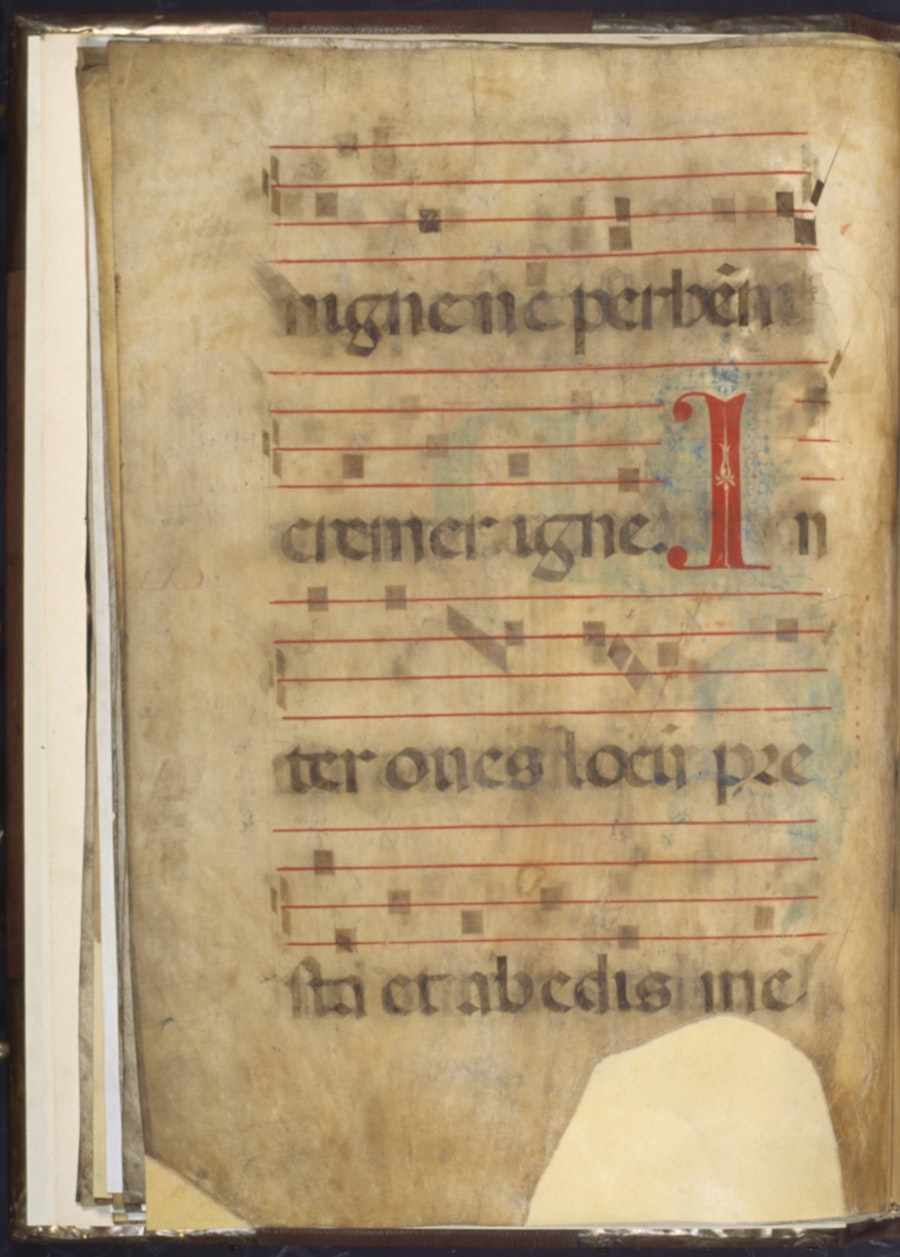 nigne ne perhẽni
cremer igne. In
ter oues locũ pre
sta et ab edis me